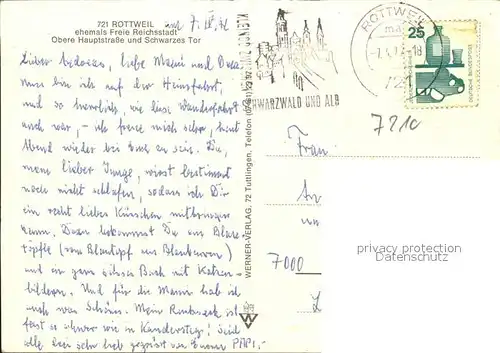 721 ROTTWEIL
ehemals Freie Reichsstadt
Obere Hauptstraße und Schwarzes Tor
Lieber, liebe Mami und
bin ich auf der Heimfahrt,
und so herrlich, wie diese Wanderfahrt
auch war, – ich freue mich sehr, heut
Abend wieder bei Euch zu sein. Du,
mein lieber Junge, wirst bestimmt
noch nicht schlafen, sodass ich Dir
ein recht liebes Küsschen mitbringen
kann. Dann bekommst Du ein Blau-
töpfle (vom Blautopf aus Blaubeuren)
und ein ganz süsses Buch mit Katzen-
bildern. Und für die Mami hab ich
auch was Schönes. Mein Rucksack ist
fast so schwer wie in Kandersteg! Seid
alle lieb gegrüsst von Eurem PAPI,-
WERNER-VERLAG, 72 Tuttlingen, Telefon
SCHWARZWALD UND ALB
ROTTWEIL
25
DEUTSCHE BUNDESPOST
7210
Frau
An
7000
L
privacy protection
Datenschutz